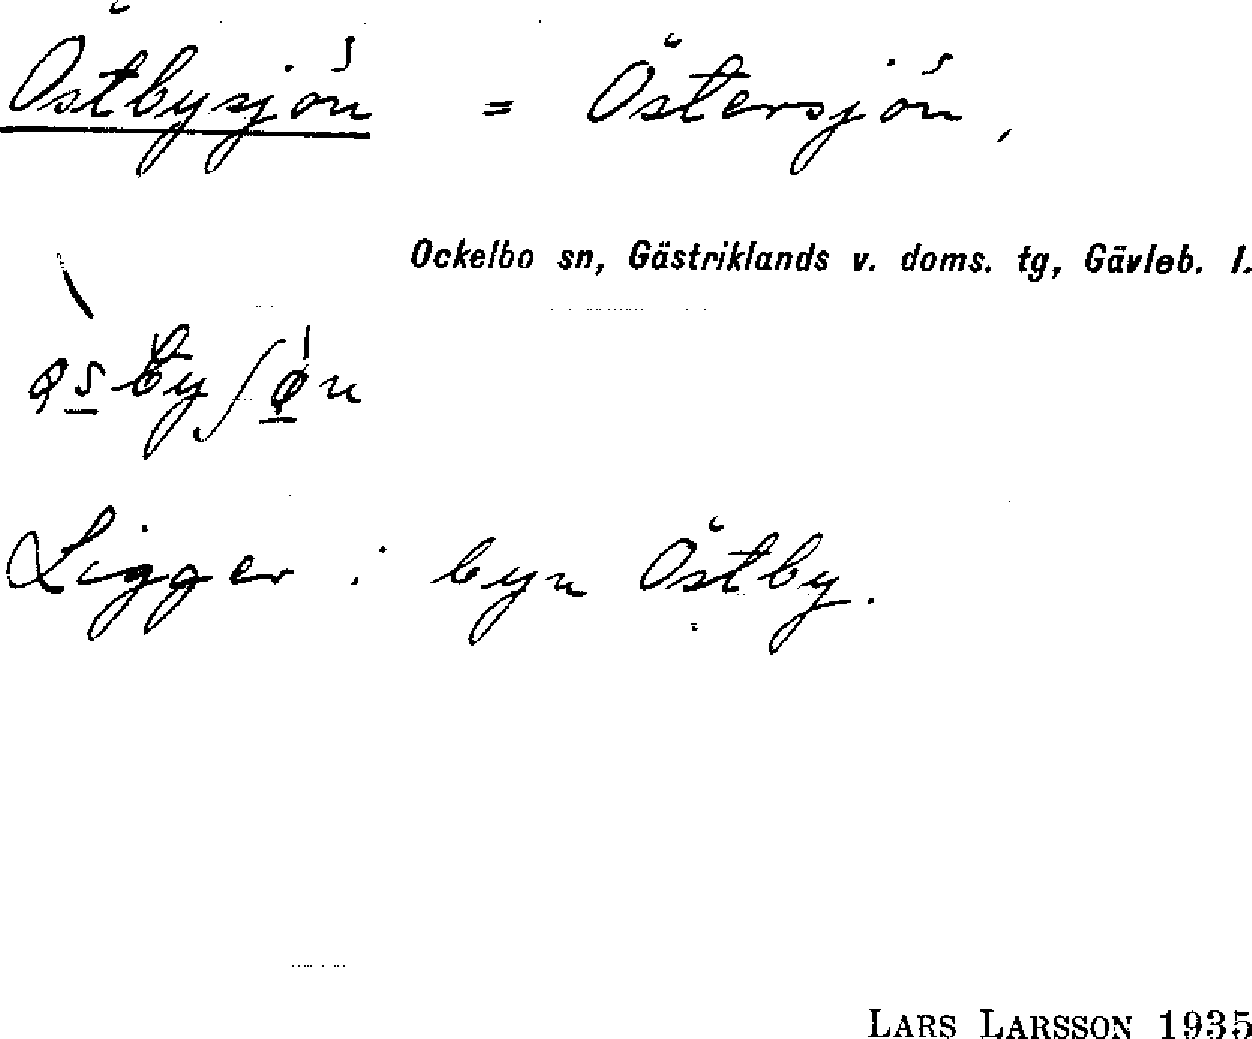 Östbysjön = Östersjön,
Ockelbo sn, Gästriklands v. doms. tg, Gävleb. l.
Ligger i byn Östby.
LARS LARSSON 1935